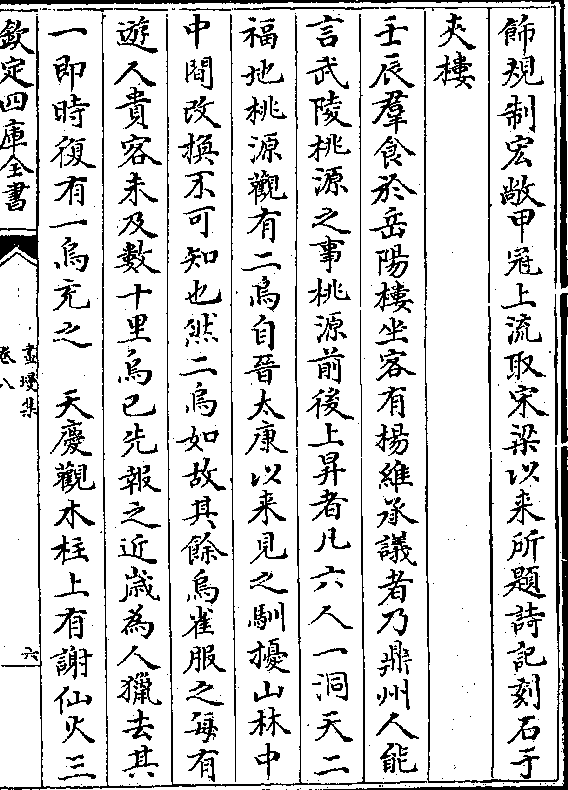 飾規制宏敞甲冠上流取宋梁以来所題詩記刻石于
夾樓
壬辰羣食於岳陽樓坐客有楊維承議者乃鼎州人能
言武陵桃源之事桃源前後上昇者凡六人一洞天二
福地桃源觀有二烏自晉太康以来見之馴擾山林中
中間改換不可知也然二烏如故其餘烏雀服之每有
遊人貴客未及數十里烏已先報之近歲為人獵去其
一即時復有一烏充之　天慶觀木柱上有謝仙火三
欽定四庫全書
畫墁集
卷八
六